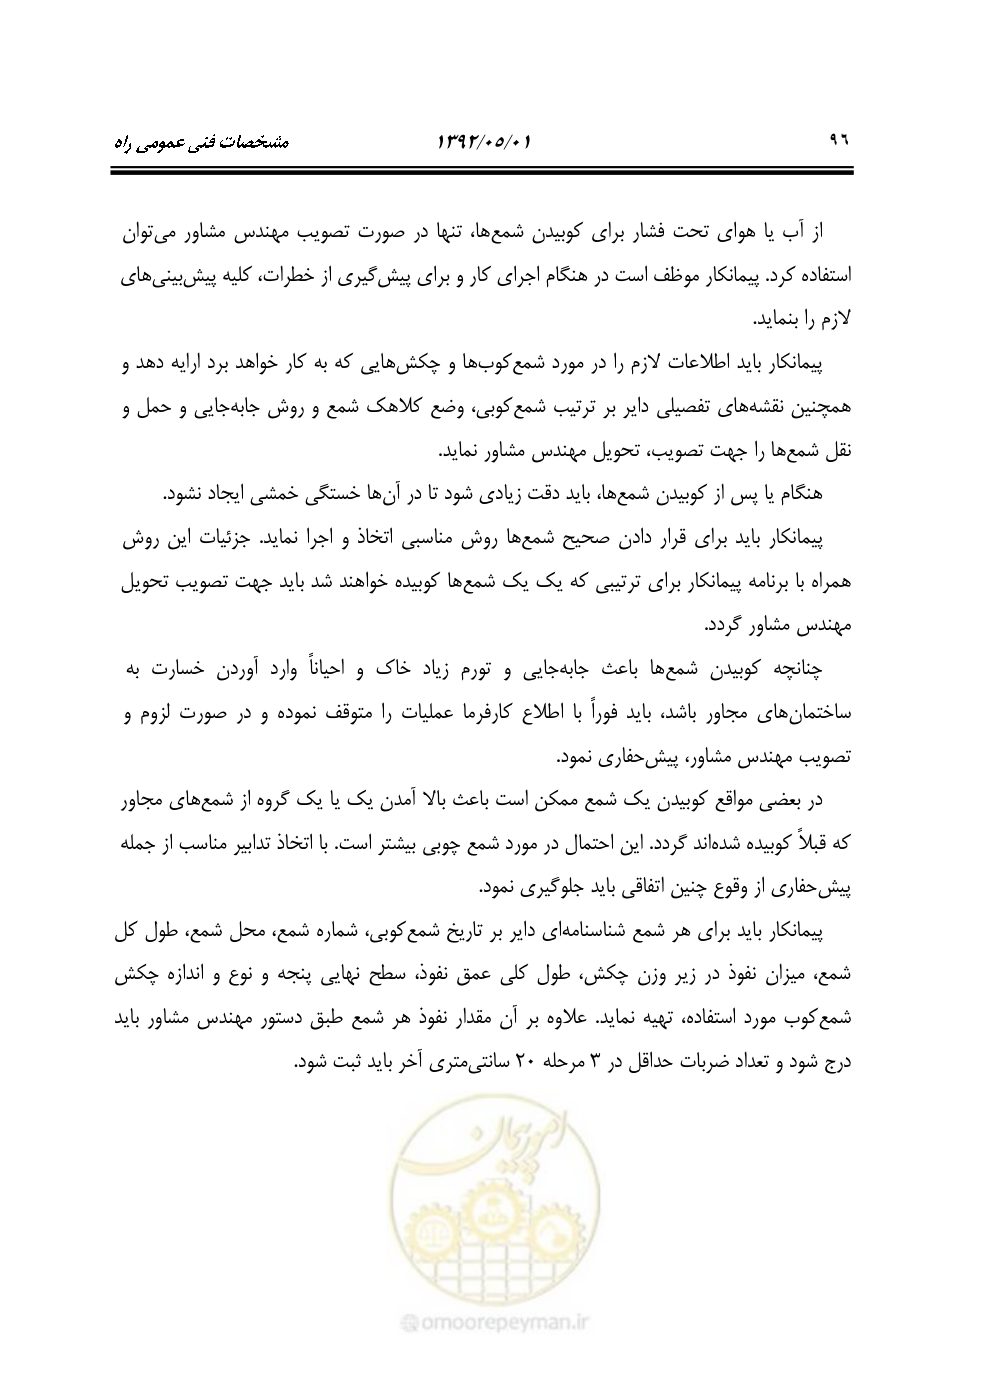 ۹۶
۱۳۹۲/۰۵/۰۱
مشخصات فنی عمومی راه
از آب یا هوای تحت فشار برای کوبیدن شمع‌ها، تنها در صورت تصویب مهندس مشاور می‌توان
استفاده کرد. پیمانکار موظف است در هنگام اجرای کار و برای پیش‌گیری از خطرات، کلیه پیش‌بینی‌های
لازم را بنماید.
پیمانکار باید اطلاعات لازم را در مورد شمع‌کوب‌ها و چکش‌هایی که به کار خواهد برد ارایه دهد و
همچنین نقشه‌های تفصیلی دایر بر ترتیب شمع‌کوبی، وضع کلاهک شمع و روش جابه‌جایی و حمل و
نقل شمع‌ها را جهت تصویب، تحویل مهندس مشاور نماید.
هنگام یا پس از کوبیدن شمع‌ها، باید دقت زیادی شود تا در آن‌ها خستگی خمشی ایجاد نشود.
پیمانکار باید برای قرار دادن صحیح شمع‌ها روش مناسبی اتخاذ و اجرا نماید. جزئیات این روش
همراه با برنامه پیمانکار برای ترتیبی که یک یک شمع‌ها کوبیده خواهند شد باید جهت تصویب تحویل
مهندس مشاور گردد.
چنانچه کوبیدن شمع‌ها باعث جابه‌جایی و تورم زیاد خاک و احیاناً وارد آوردن خسارت به
ساختمان‌های مجاور باشد، باید فوراً با اطلاع کارفرما عملیات را متوقف نموده و در صورت لزوم و
تصویب مهندس مشاور، پیش‌حفاری نمود.
در بعضی مواقع کوبیدن یک شمع ممکن است باعث بالا آمدن یک یا یک گروه از شمع‌های مجاور
که قبلاً کوبیده شده‌اند گردد. این احتمال در مورد شمع چوبی بیشتر است. با اتخاذ تدابیر مناسب از جمله
پیش‌حفاری از وقوع چنین اتفاقی باید جلوگیری نمود.
پیمانکار باید برای هر شمع شناسنامه‌ای دایر بر تاریخ شمع‌کوبی، شماره شمع، محل شمع، طول کل
شمع، میزان نفوذ در زیر وزن چکش، طول کلی عمق نفوذ، سطح نهایی پنجه و نوع و اندازه چکش
شمع‌کوب مورد استفاده، تهیه نماید. علاوه بر آن مقدار نفوذ هر شمع طبق دستور مهندس مشاور باید
درج شود و تعداد ضربات حداقل در ۳ مرحله ۲۰ سانتی‌متری آخر باید ثبت شود.
امور پیمان
omoorepeyman.ir